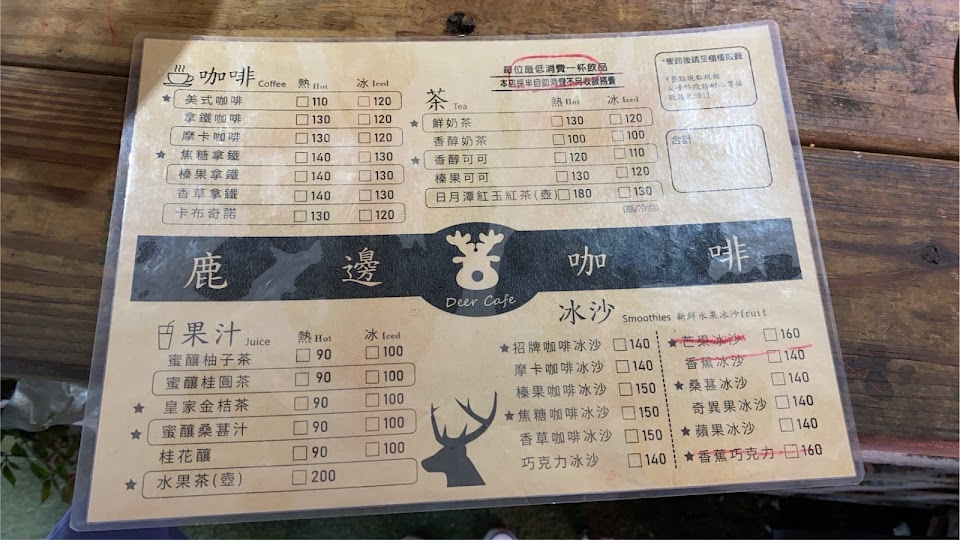 咖啡 Coffee 熱 Hot 冰 Iced
★ 美式咖啡 □110 □120
拿鐵咖啡 □130 □120
摩卡咖啡 □130 □120
★ 焦糖拿鐵 □140 □130
榛果拿鐵 □140 □130
香草拿鐵 □140 □130
卡布奇諾 □130 □120
每位最低消費一杯飲品
本店採半自助消費不另收服務費
茶 Tea 熱 Hot 冰 Iced
★ 鮮奶茶 □130 □120
香醇奶茶 □100 □100
★ 香醇可可 □120 □110
榛果可可 □130 □120
日月潭紅玉紅茶(壺) □180 □130
合計
鹿邊咖啡
Deer Cafe
果汁 Juice 熱 Hot 冰 Iced
蜜釀柚子茶 □90 □100
蜜釀桂圓茶 □90 □100
★ 皇家金桔茶 □90 □100
★ 蜜釀桑葚汁 □90 □100
桂花釀 □90 □100
★ 水果茶(壺) □200
冰沙 Smoothies 新鮮水果冰沙fruit
★招牌咖啡冰沙 □140
摩卡咖啡冰沙 □140
榛果咖啡冰沙 □150
★焦糖咖啡冰沙 □150
香草咖啡冰沙 □150
巧克力冰沙 □140
★芒果冰沙 □160
香蕉冰沙 □140
★桑葚冰沙 □140
奇異果冰沙 □140
★蘋果冰沙 □140
★香蕉巧克力 □160